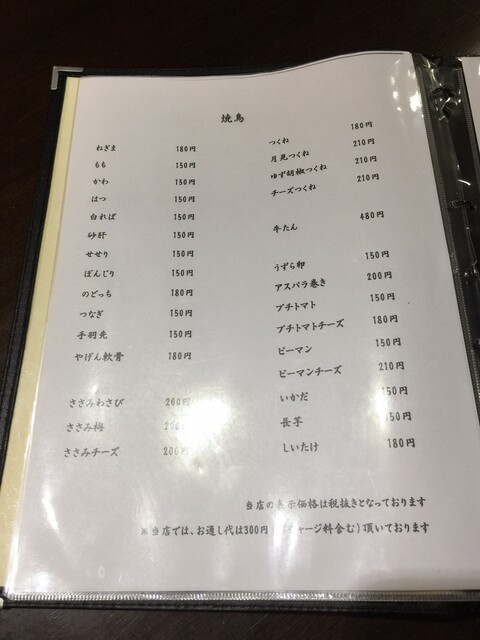 焼鳥
ねぎま 180円
もも 150円
かわ 150円
はつ 150円
白ればー 150円
砂肝 150円
せせり 150円
ぼんじり 150円
のどっち 180円
つなぎ 150円
手羽先 150円
やげん軟骨 180円
ささみわさび 200円
ささみ梅 200円
ささみチーズ 200円
つくね 180円
月見つくね 210円
ゆず胡椒つくね 210円
チーズつくね 210円
牛たん 480円
うずら卵 150円
アスパラ巻き 200円
プチトマト 150円
プチトマトチーズ 180円
ピーマン 150円
ピーマンチーズ 210円
いかだ 150円
長芋 150円
しいたけ 180円
当店の表示価格は税抜きとなっております
※当店では、お通し代は300円(チャージ料含む)頂いております